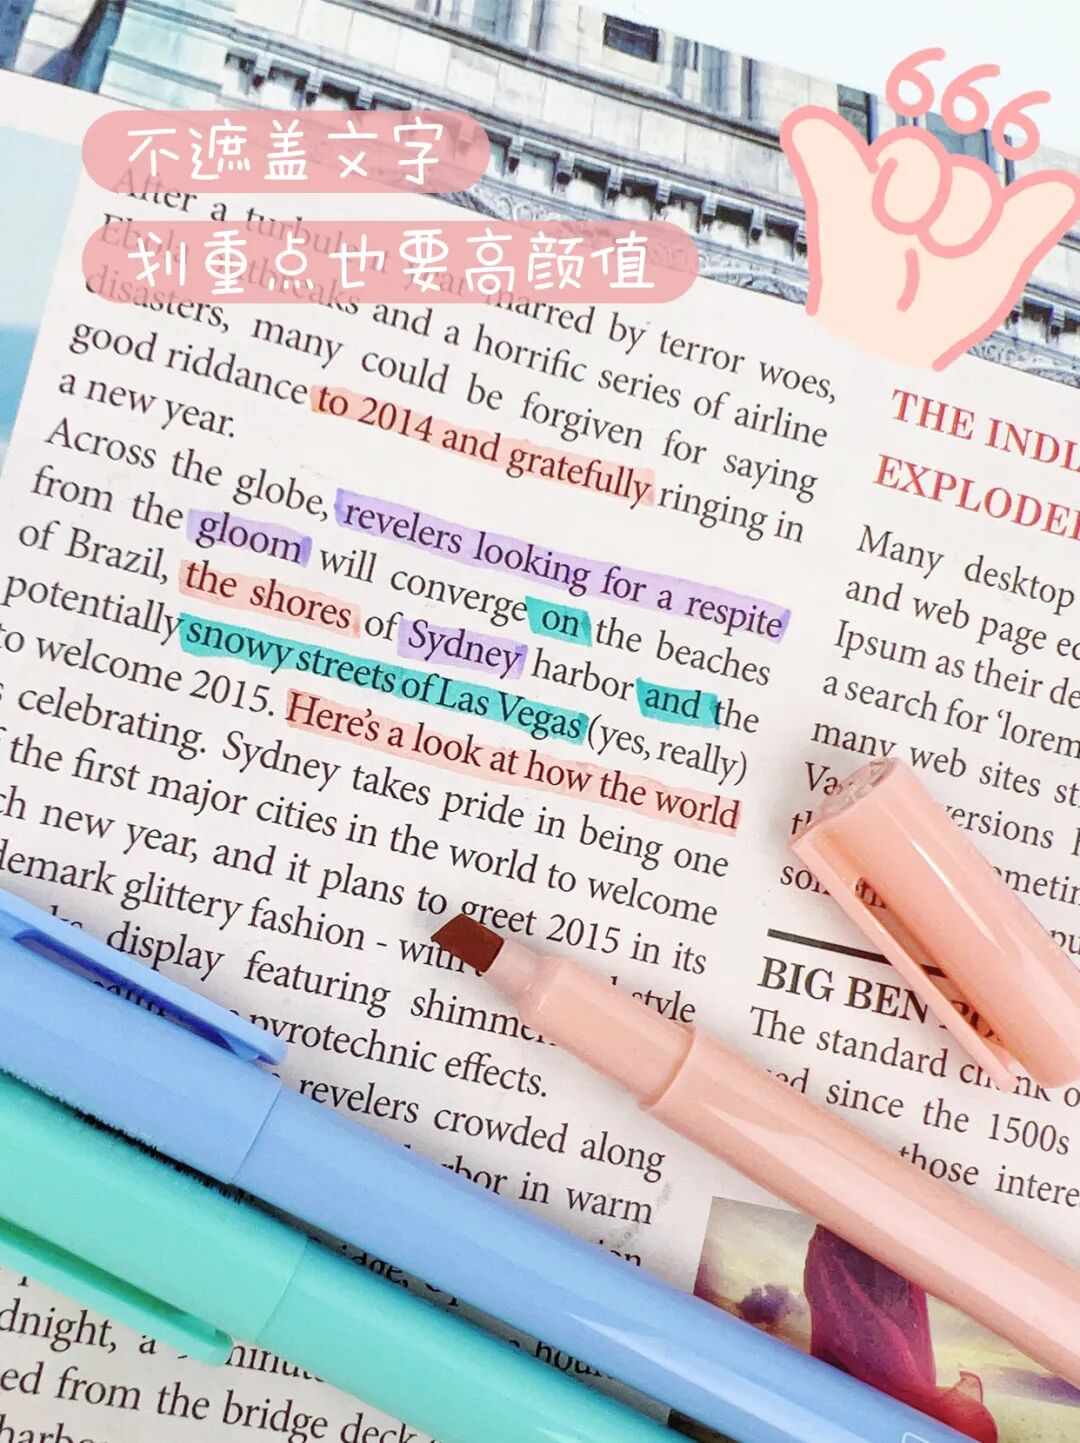 不遮盖文字
划重点也要高颜值
666
After a turbulent year marred by terror woes,
Ebola outbreaks and a horrific series of airline
disasters, many could be forgiven for saying
good riddance to 2014 and gratefully ringing in
a new year.
Across the globe, revelers looking for a respite
from the gloom will converge on the beaches
of Brazil, the shores of Sydney harbor and the
potentially snowy streets of Las Vegas (yes, really)
to welcome 2015. Here's a look at how the world
celebrating. Sydney takes pride in being one
the first major cities in the world to welcome
new year, and it plans to greet 2015 in its
glittery fashion - with
display featuring style
pyrotechnic effects.
revelers crowded along
in warm
a
ed from the bridge deck
THE
Many desktop
and web page
Ipsum as their
a search for 'lorem
many web sites
BIG BEN
The standard
since the 1500s
those